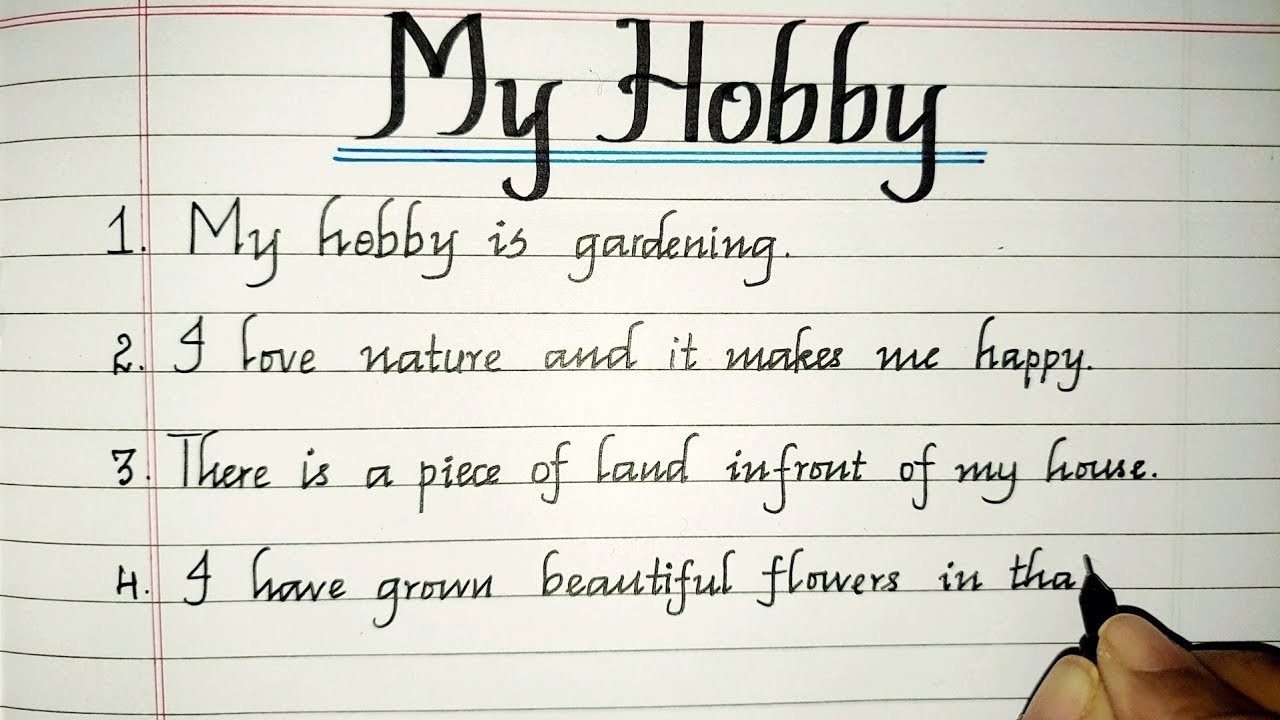 My Hobby
1. My hobby is gardening.
2. I love nature and it makes me happy.
3. There is a piece of land infront of my house.
4. I have grown beautiful flowers in tha